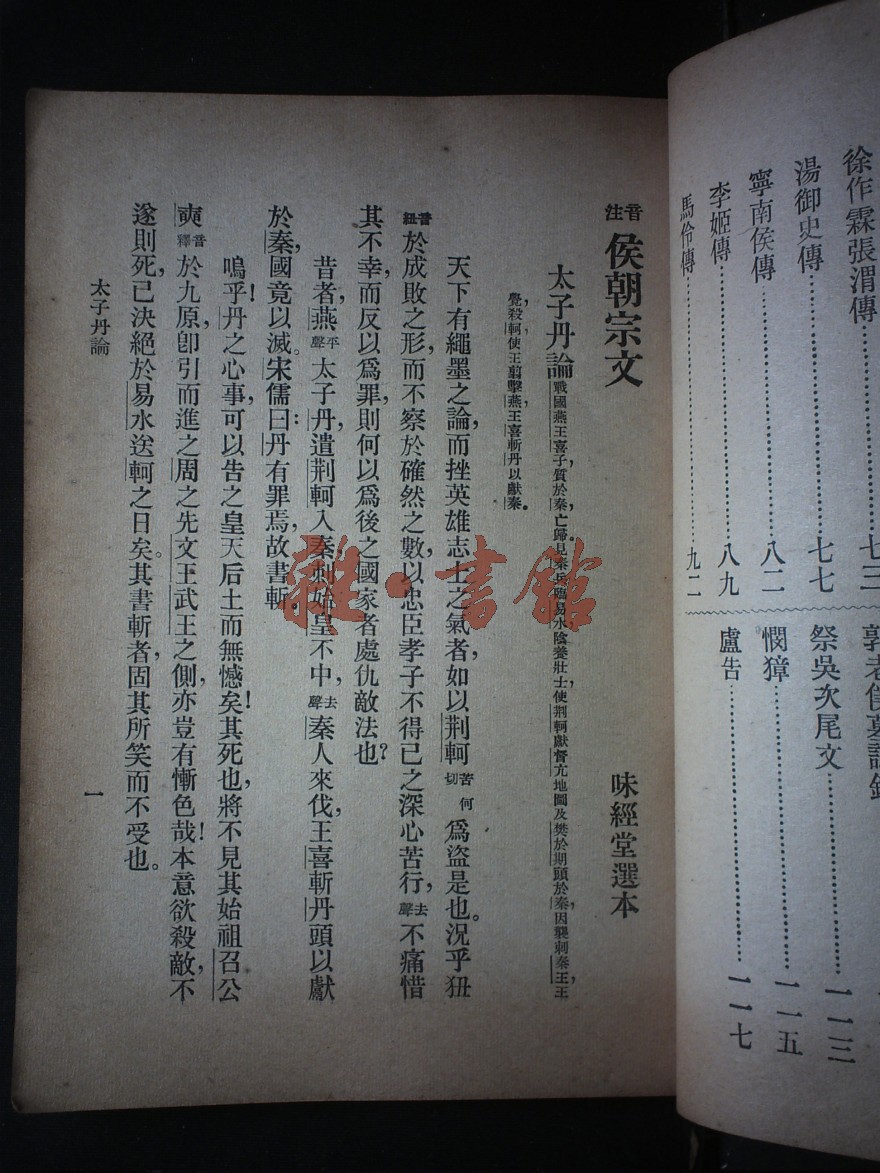 徐作霖張渭傳……七三
湯御史傳……七七
寧南侯傳……八二
李姬傳……八九
馬伶傳……九二
祭吳次尾文……一一三
憫獐……一一五
盧告……一一七
音注 侯朝宗文 味經堂選本
太子丹論 戰國燕王喜子,質於秦,亡歸。見秦兵臨易水,陰養壯士,使荆軻獻督亢地圖及樊於期頭於秦,因襲刺秦王,王
覺,殺軻,使王翦擊燕,燕王喜斬丹以獻秦。
天下有繩墨之論,而挫英雄志士之氣者,如以荆軻苦何切爲盜是也。況乎狃
音紐於成敗之形,而不察於確然之數,以忠臣孝子不得已之深心苦行,去聲不痛惜
其不幸,而反以爲罪,則何以爲後之國家者處仇敵法也?
昔者,燕平聲太子丹,遣荆軻入秦,刺始皇不中,去聲秦人來伐,王喜斬丹頭以獻
於秦,國竟以滅。宋儒曰:丹有罪焉,故書斬。
嗚乎!丹之心事,可以告之皇天后土而無憾矣!其死也,將不見其始祖召公
奭音釋於九原,卽引而進之周之先文王武王之側,亦豈有慚色哉!本意欲殺敵,不
遂則死,已決絕於易水送軻之日矣。其書斬者,固其所笑而不受也。
太子丹論
一
雜·書館